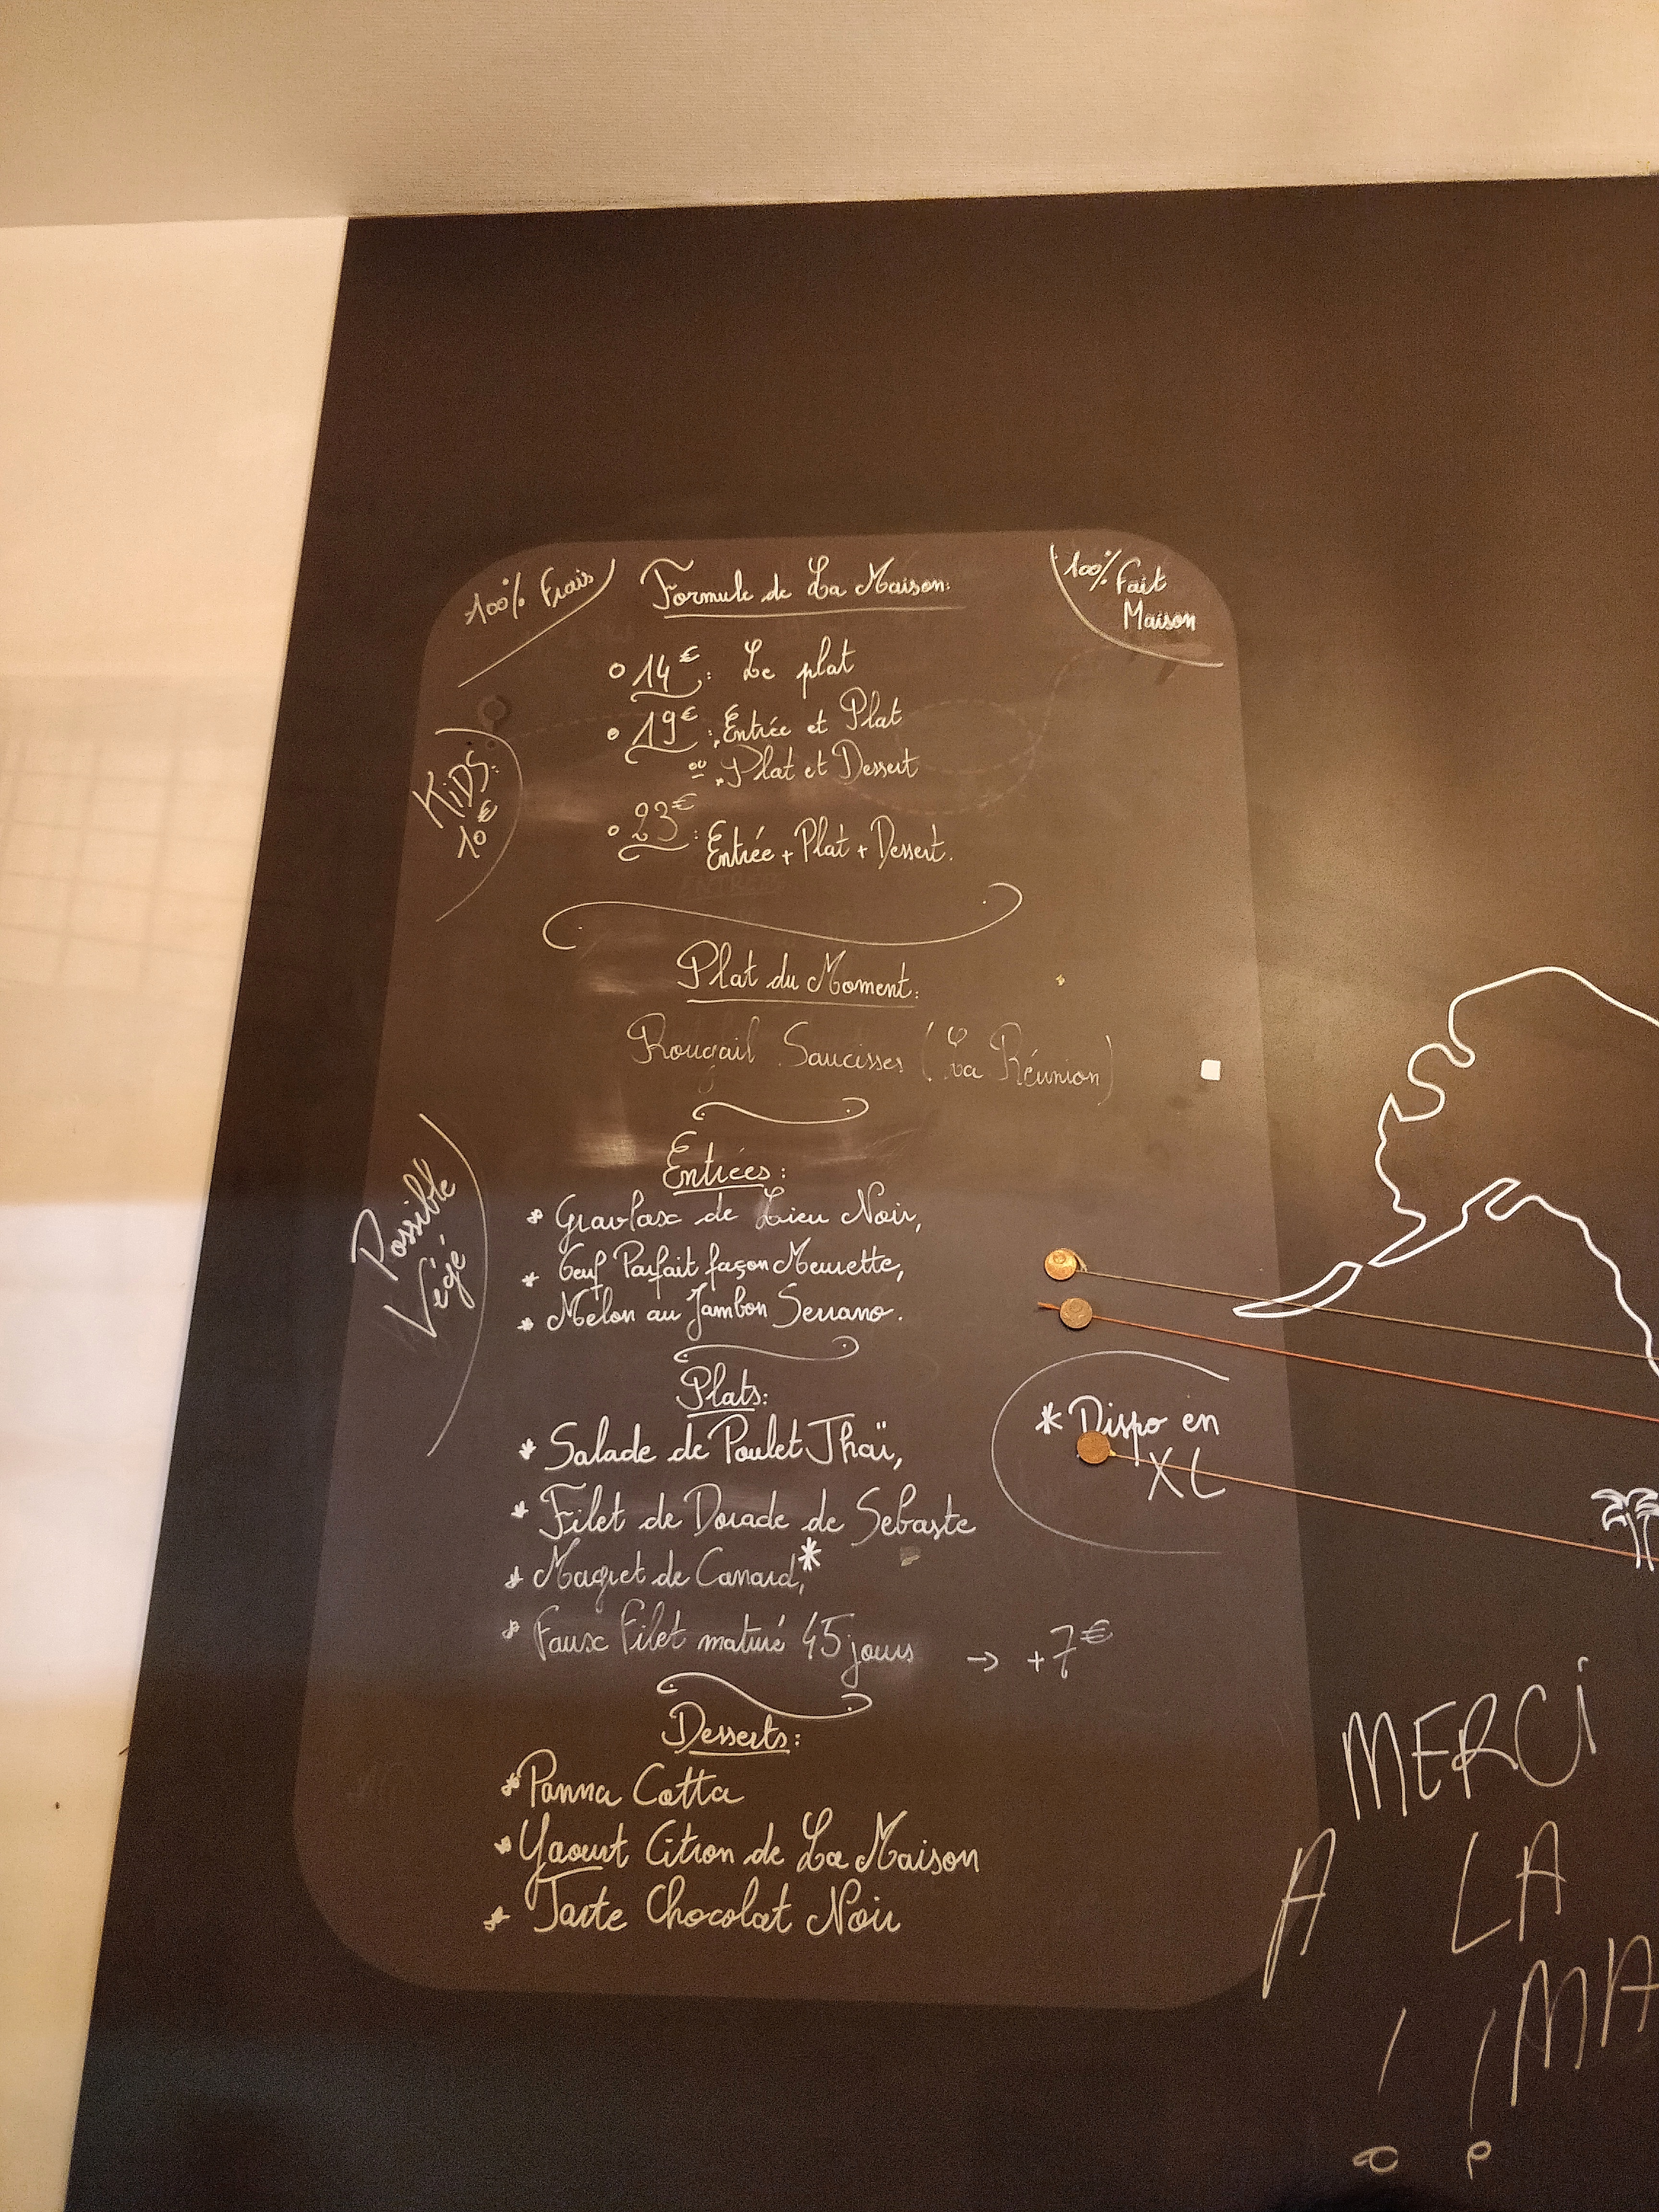 100% Frais
Formule de La Maison:
100% Fait
Maison
14€: Le plat
19€: Entrée et Plat
ou Plat et Dessert
23€: Entrée + Plat + Dessert.
KiDS:
10€
Plat du Moment:
Rougail Saucisses (La Réunion)
Entrées:
* Gravlax de Lieu Noir,
* Oeuf Parfait façon Meurette,
* Melon au Jambon Serrano.
Possible
Végé
Plats:
* Salade de Poulet Thaï,
* Filet de Dorade de Sebaste
* Magret de Canard,*
* Faux Filet maturé 45 jours → +7€
* Dispo en
XL
Desserts:
* Panna Cotta
* Yaourt Citron de La Maison
* Tarte Chocolat Noir
MERCi
A LA
MA